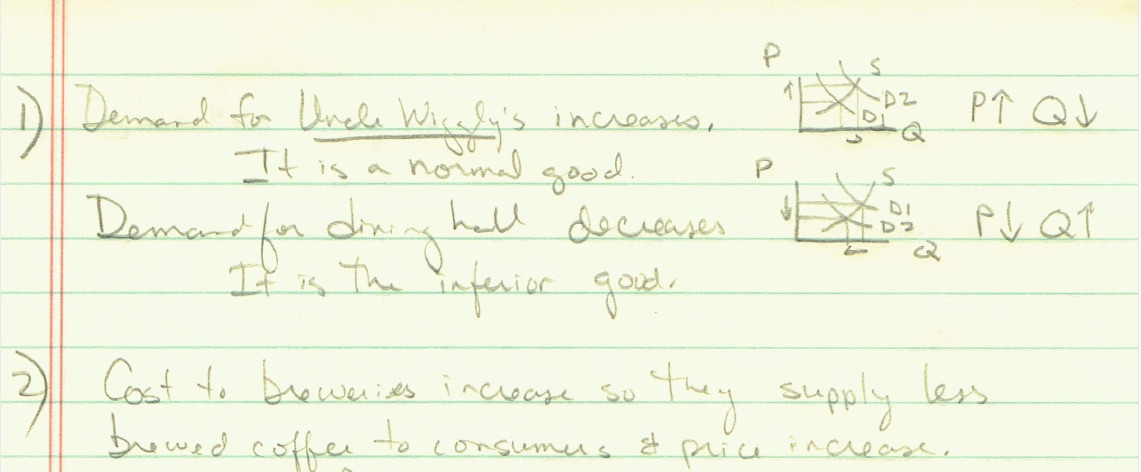 1) Demand for Uncle Wiggly's increases. P S D2 D1 Q P↑ Q↓
It is a normal good.
Demand for dining hall decreases P S D1 D2 Q P↓ Q↑
It is the inferior good.
2) Cost to breweries increase so they supply less
brewed coffee to consumers & price increase.